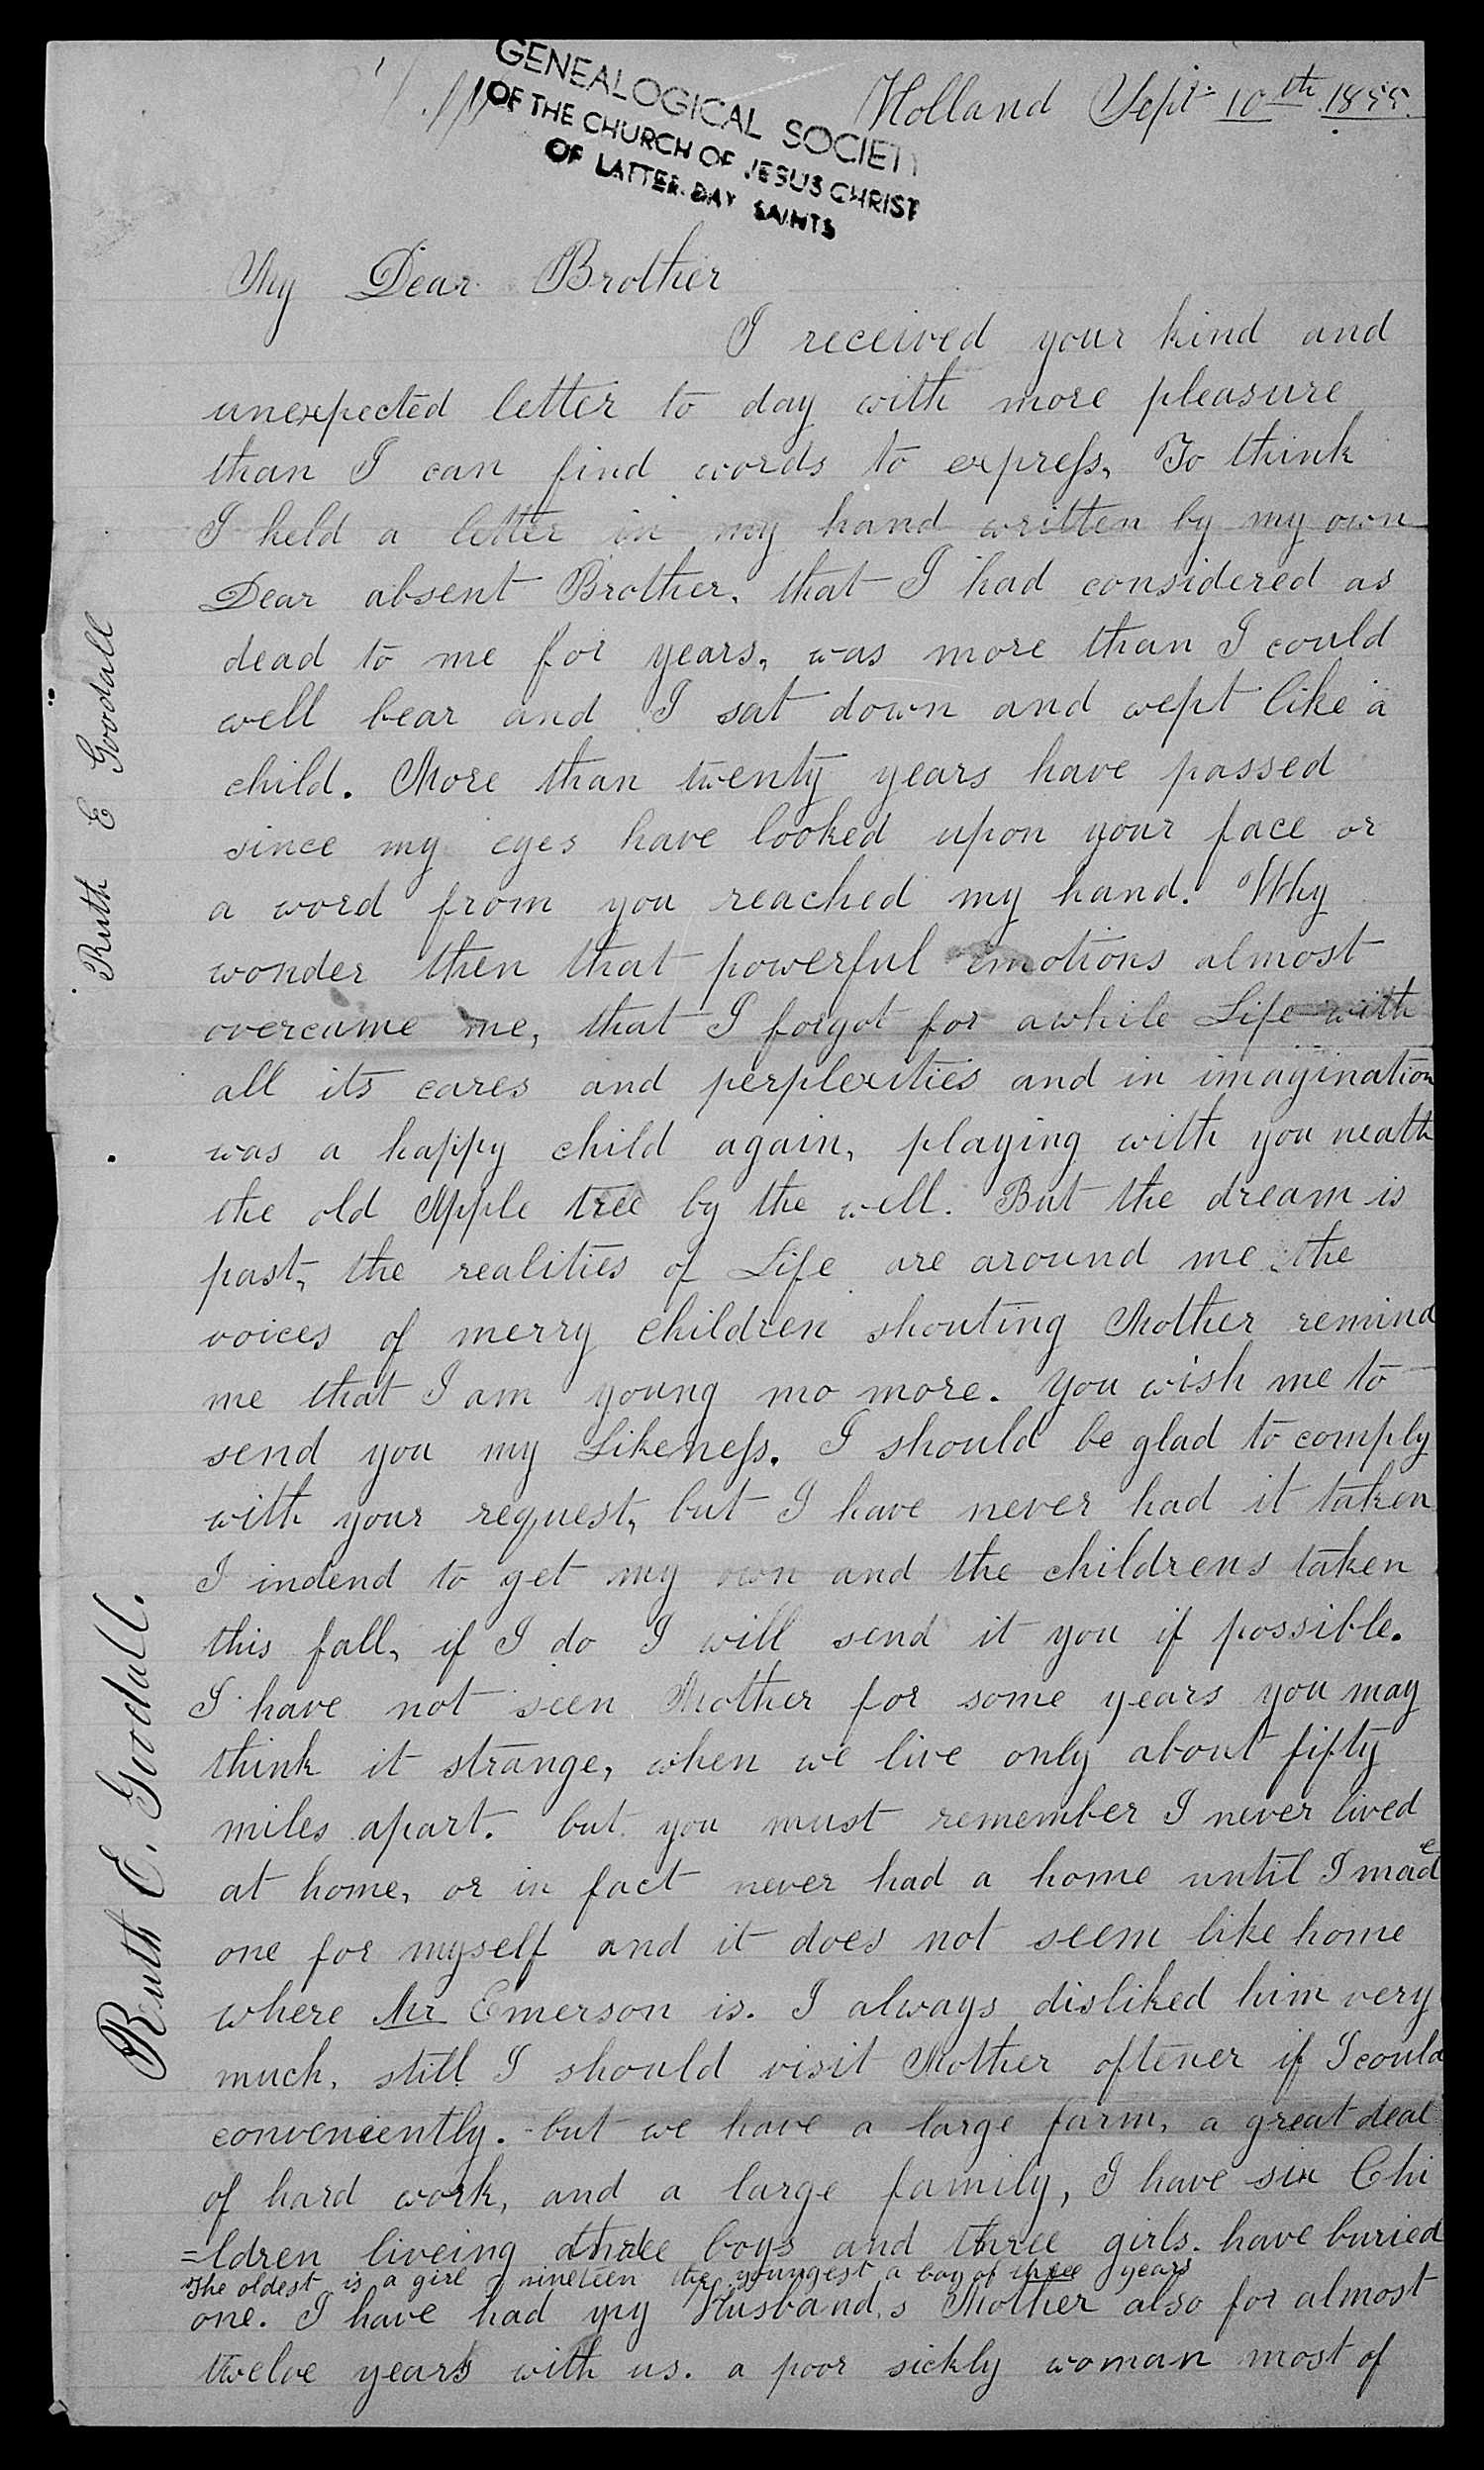 GENEALOGICAL SOCIETY
OF THE CHURCH OF JESUS CHRIST
OF LATTER-DAY SAINTS
Holland Sept 10th 1855.
My Dear Brother
I received your kind and
unexpected letter to day with more pleasure
than I can find words to express, To think
I held a letter in my hand written by my own
Dear absent Brother, that I had considered as
dead to me for years, was more than I could
well bear and I sat down and wept like a
child. More than twenty years have passed
since my eyes have looked upon your face or
a word from you reached my hand. Why
wonder then that powerful emotions almost
overcame me, that I forgot for awhile Life with
all its cares and perplexities and in imagination
was a happy child again, playing with you neath
the old Apple tree by the well. But the dream is
past, the realities of Life are around me the
voices of merry children shouting Mother remind
me that I am young mo more. You wish me to
send you my Likeness. I should be glad to comply
with your request, but I have never had it taken
I indend to get my own and the childrens taken
this fall, if I do I will send it you if possible.
I have not seen Mother for some years you may
think it strange, when we live only about fifty
miles apart. but you must remember I never lived
at home, or in fact never had a home until I made
one for myself and it does not seem like home
where Mr Emerson is. I always disliked him very
much, still I should visit Mother oftener if I could
conveniently. but we have a large farm, a great deal
of hard work, and a large family, I have six Chi
=ldren liveing three boys and three girls. have buried
The oldest is a girl nineteen the youngest a boy of three years
one. I have had my Husband,s Mother also for almost
twelve years with us. a poor sickly woman most of
Ruth E Goodall
Ruth E. Goodall.